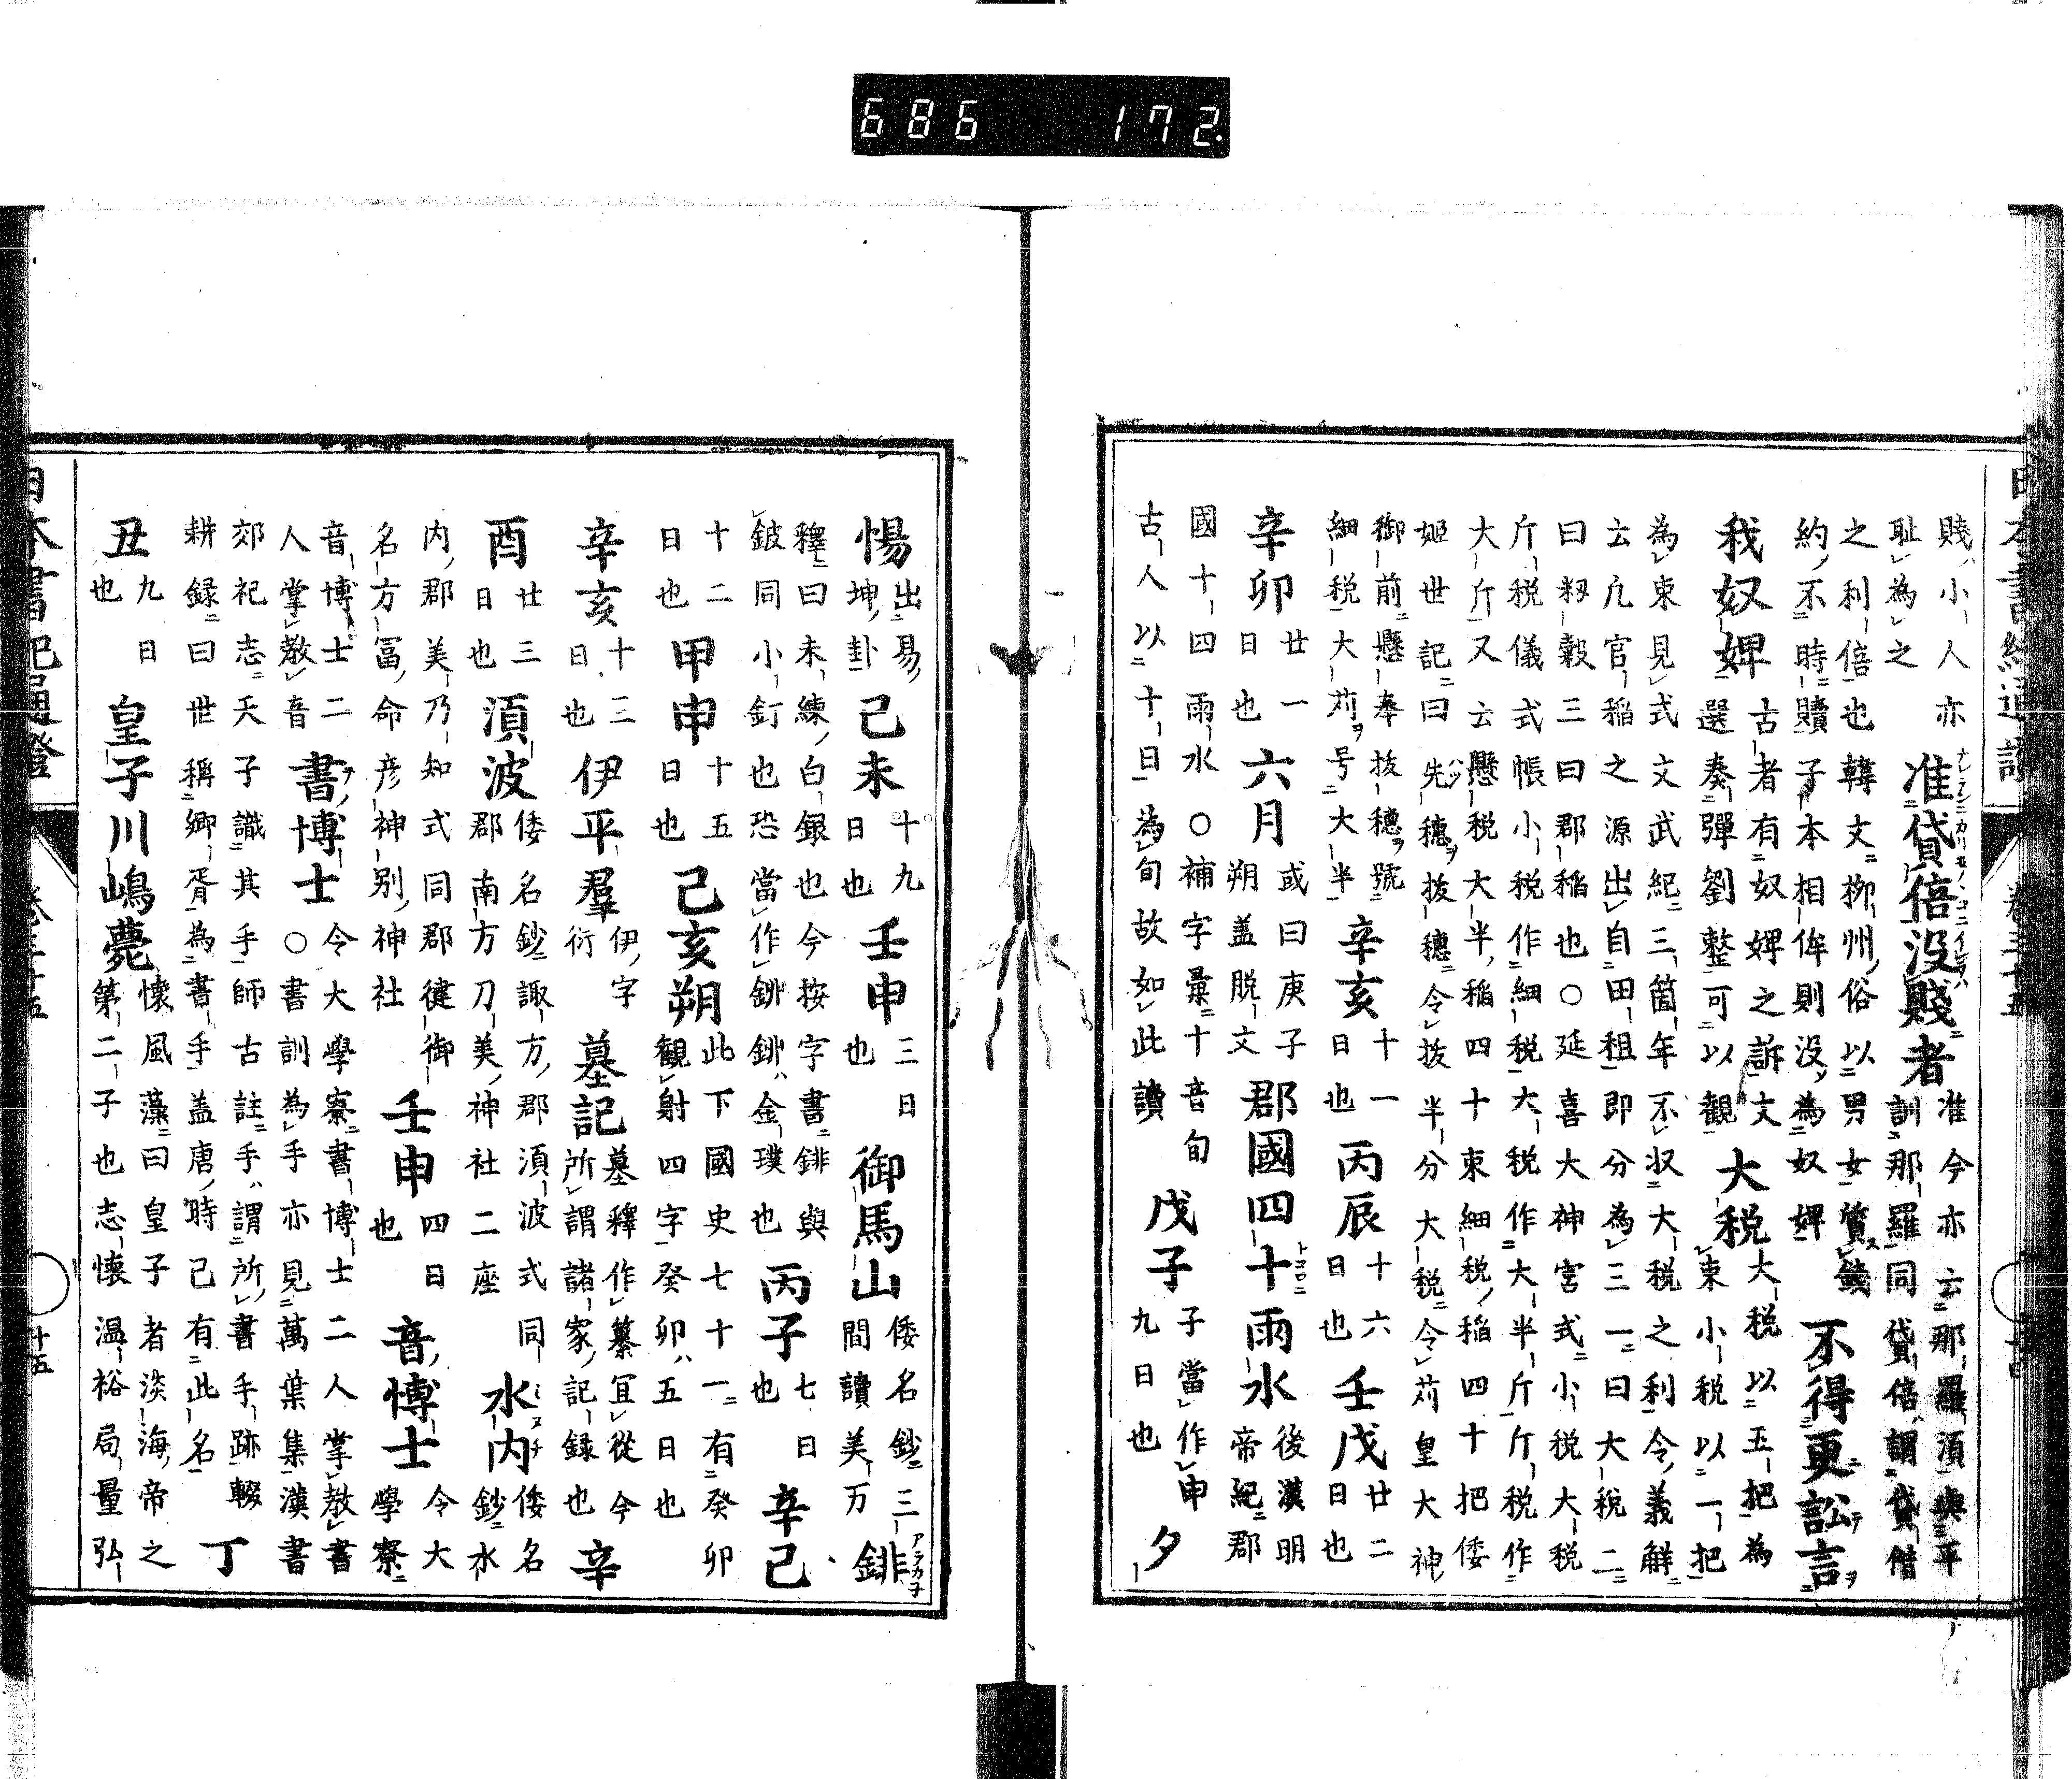 賤小人亦
耻為之
准貸倍没賤者
准今亦云那羅湏與平
訓那羅同貸倍謂貸偕
之利倍也韓文柳州俗以男女質錢
約不時贖子本相侔則没為奴婢
不得更訟言
我奴婢
古者有奴婢之訴文
選奏彈劉整可以觀
大税
大税以五把為
束小税以一把
為束見式文武紀三箇年不収大税之利令義解
云凢官稲之源出自田租即分為三一曰大税二
曰籾穀三曰郡稲也○延喜大神宮式小税大税
斤税儀式帳小税作細税大税作大半斤斤税作
大斤又云懸税大半稲四十束細税稲四十把倭
姬世記曰先穗抜穗令抜半分大税令苅皇大神
御前懸奉抜穗號
細税大苅号大半
辛亥
十一
日也
丙辰
十六
日也
壬戌
廿二
日也
辛卯
廿一
日也
六月
或曰庚子
朔盖脱文
郡國四十雨水
後漢明
帝紀郡
國十四雨水○補字彙十音旬
古人以十日為旬故如此讀
戊子
子當作申
九日也
夕
惕
出易
坤卦
己未
十九
日也
壬申
三日
也
御馬山
倭名鈔三
間讀美万
錍
釋曰未練白銀也今按字書錍與
鈹同小釘也恐當作鉚鉚ハ金璞也
丙子
七日
也
辛己
十二
日也
甲申
十五
日也
己亥朔
此下國史七十一有癸卯
觀射四字癸卯ハ五日也
辛亥
十三
日也
伊平羣
伊字
衍
墓記
墓釋作纂宜從今
所謂諸家記録也
辛
酉
廿三
日也
湏波
倭名鈔諏方郡湏波式同
郡南方刀美神社二座
水内
倭名
鈔水
内郡美乃知式同郡健御
名方冨命彦神別神社
壬申
四日
也
音博士
令大
學寮
音博士二
人掌敎音
書博士
令大學寮書博士二人掌敎書
○書訓為手亦見萬葉集漢書
郊祀志天子識其手師古註手ハ謂所書手跡輟
耕録曰世稱郷胥為書手盖唐時已有此名
丁
丑
九日
也
皇子川嶋薨
懷風藻曰皇子者淡海帝之
第二子也志懷温裕局量弘
日本書紀通證
十五
686 172